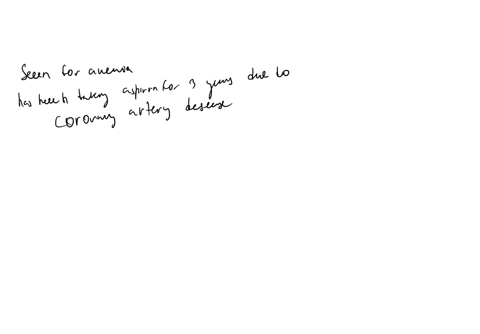 Seen for anemia
has been taking aspirin for 3 years due to
coronary artery disease